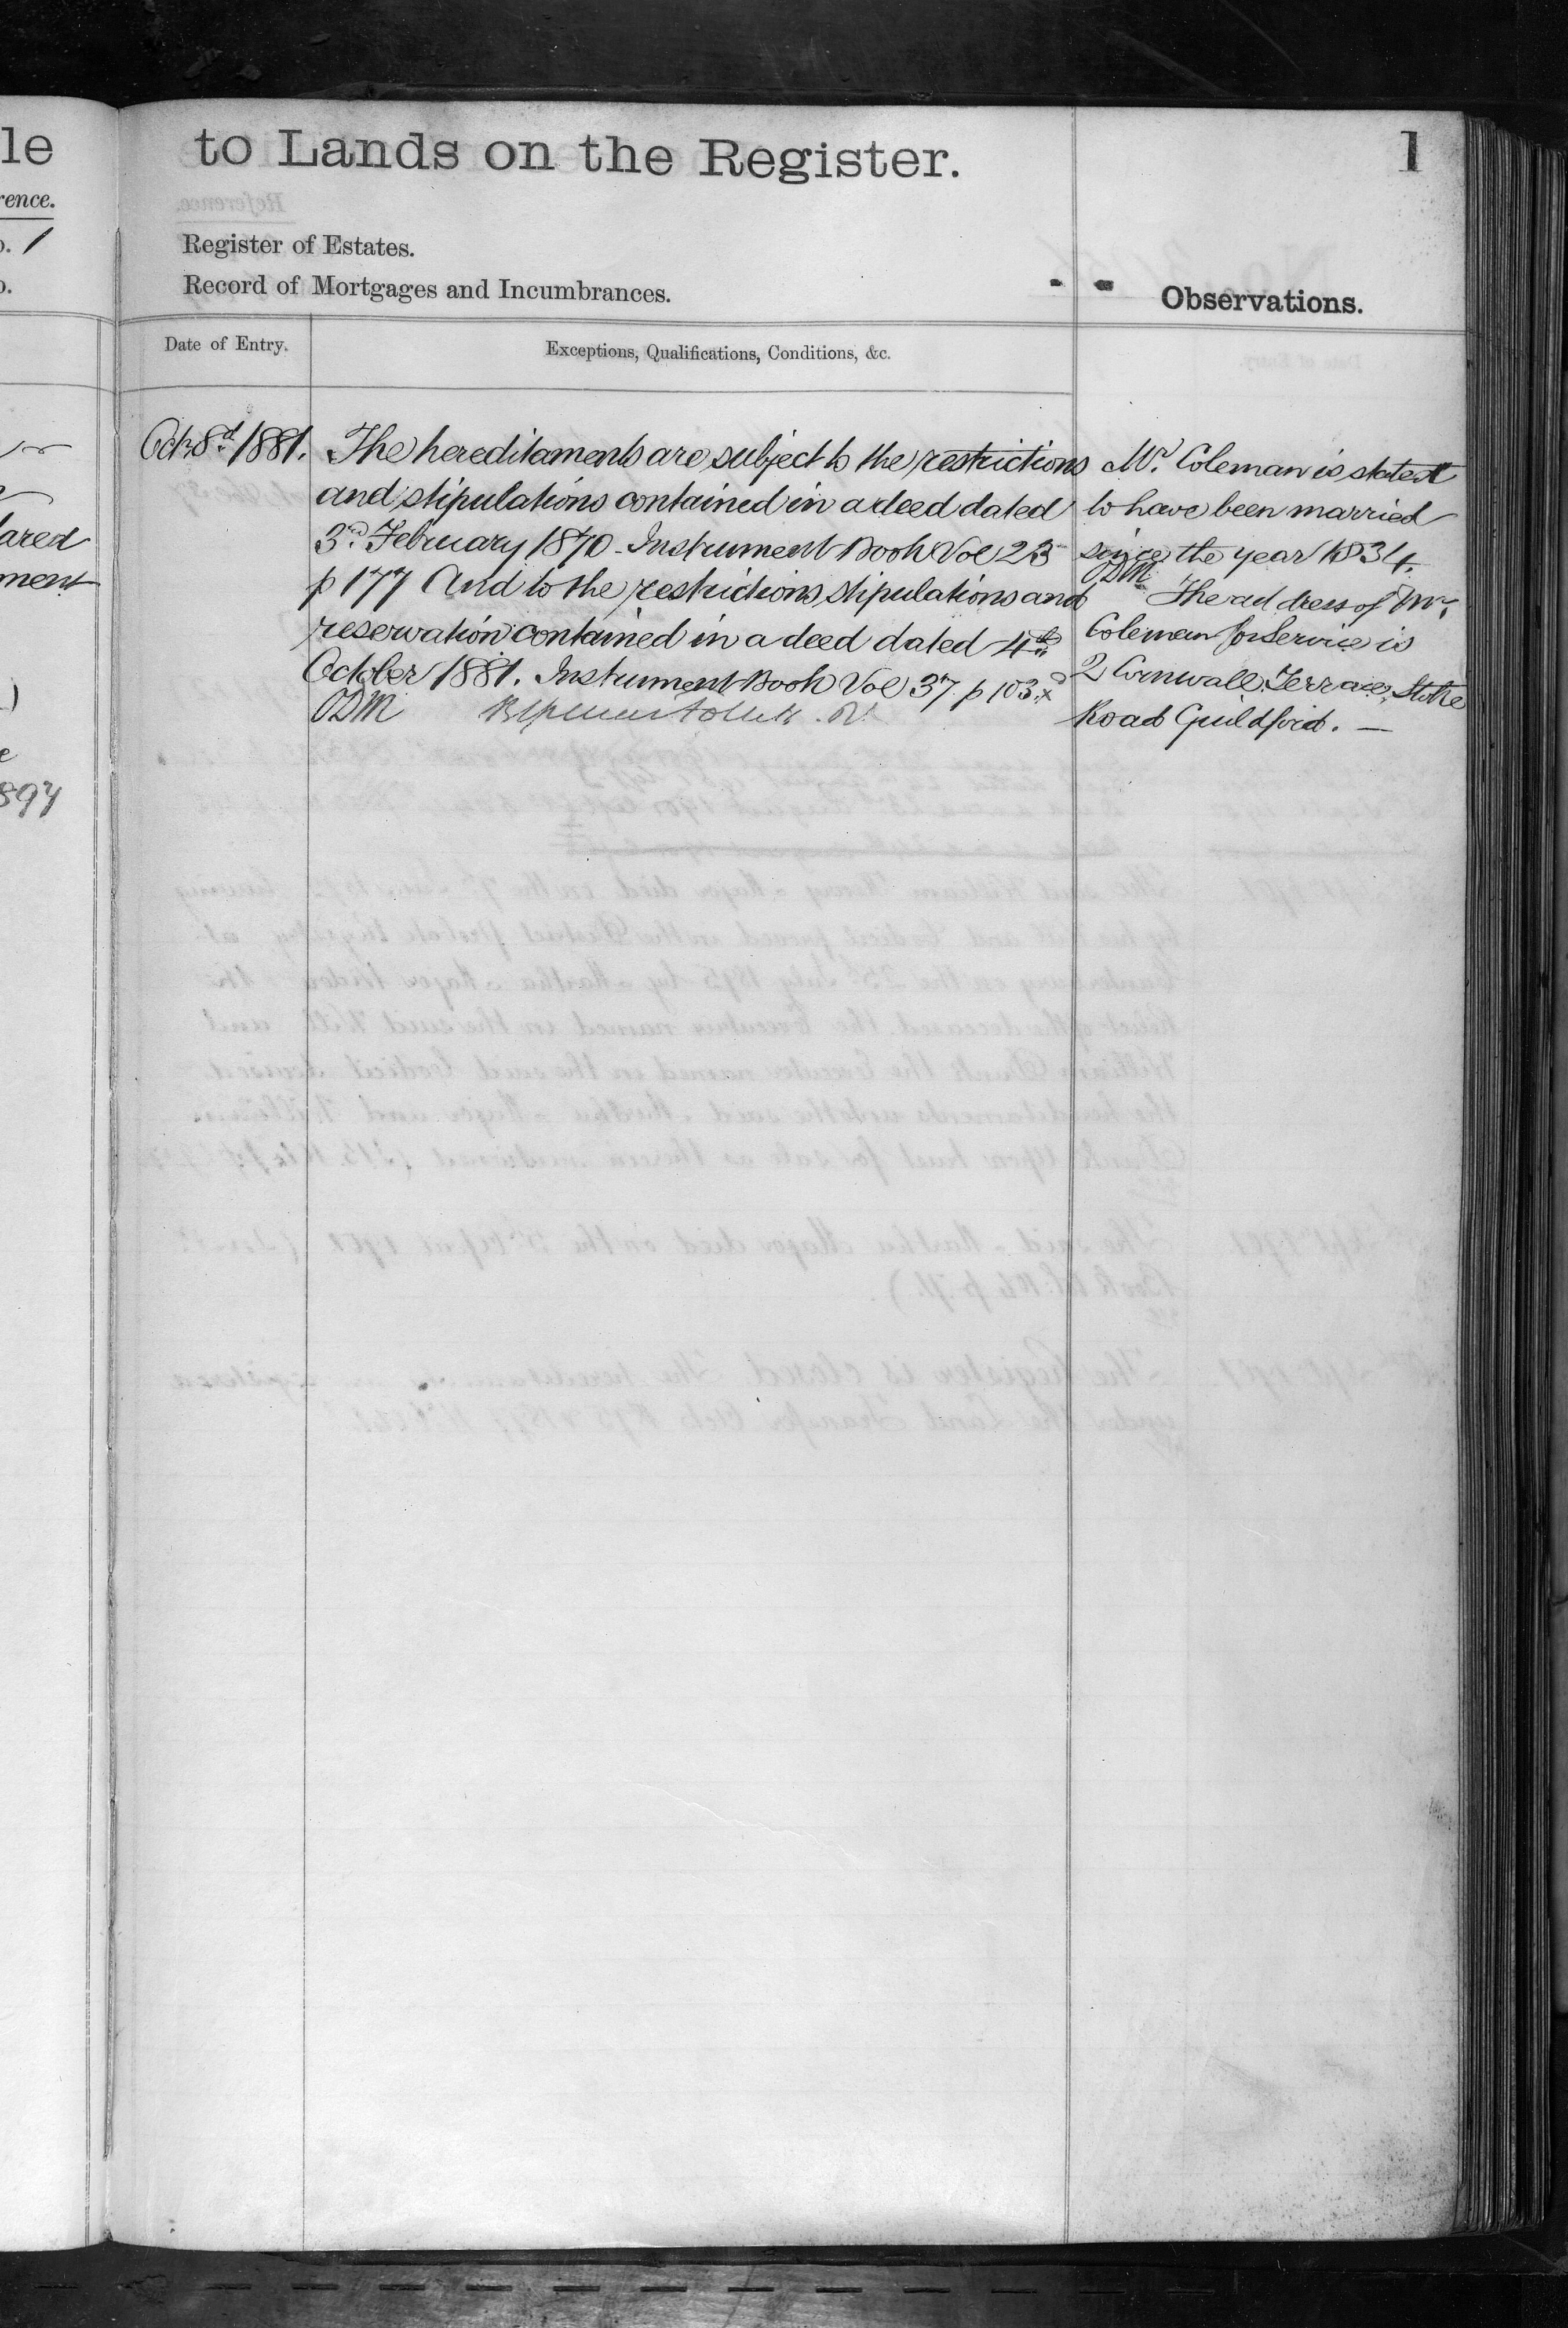 le
rence.
o. 1
o.
ared
ment
)
e
1897
to Lands on the Register.
1
Register of Estates.
Record of Mortgages and Incumbrances.
Observations.
Date of Entry.
Exceptions, Qualifications, Conditions, &c.
Octr 8th 1881.
The hereditaments are subject to the restrictions
and stipulations contained in a deed dated
3rd February 1870 - Instrument Book Vol 23
p 177 And to the restrictions stipulations and
reservation contained in a deed dated 4th
October 1881. Instrument Book Vol 37 p 103.x
ODM
Mr Coleman is stated
to have been married
since the year 1834.
ODM
The address of Mr
Coleman for Service is
2 Cornwall Terrace, Stoke
Road Guildford. —